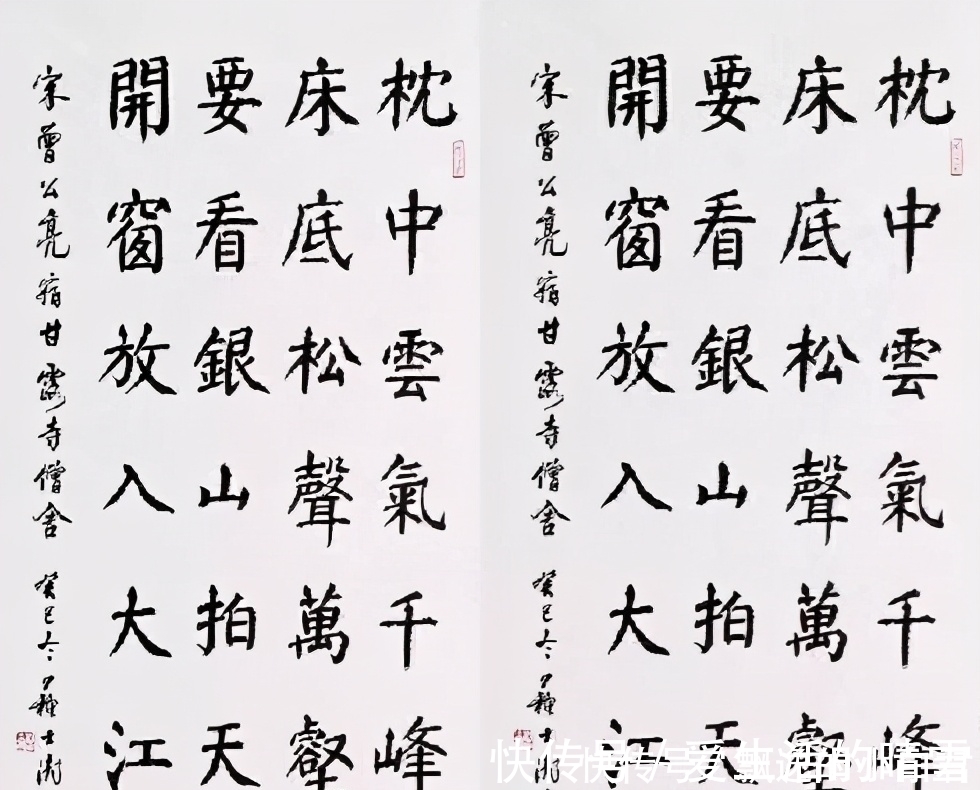 枕中雲氣千峰
床底松聲萬壑
要看銀山拍天
開窗放入大江
宋曾公亮宿甘露寺僧舍 癸巳冬
枕中雲氣千峰
床底松聲萬壑
要看銀山拍天
開窗放入大江
宋曾公亮宿甘露寺僧舍 癸巳冬
快传号/